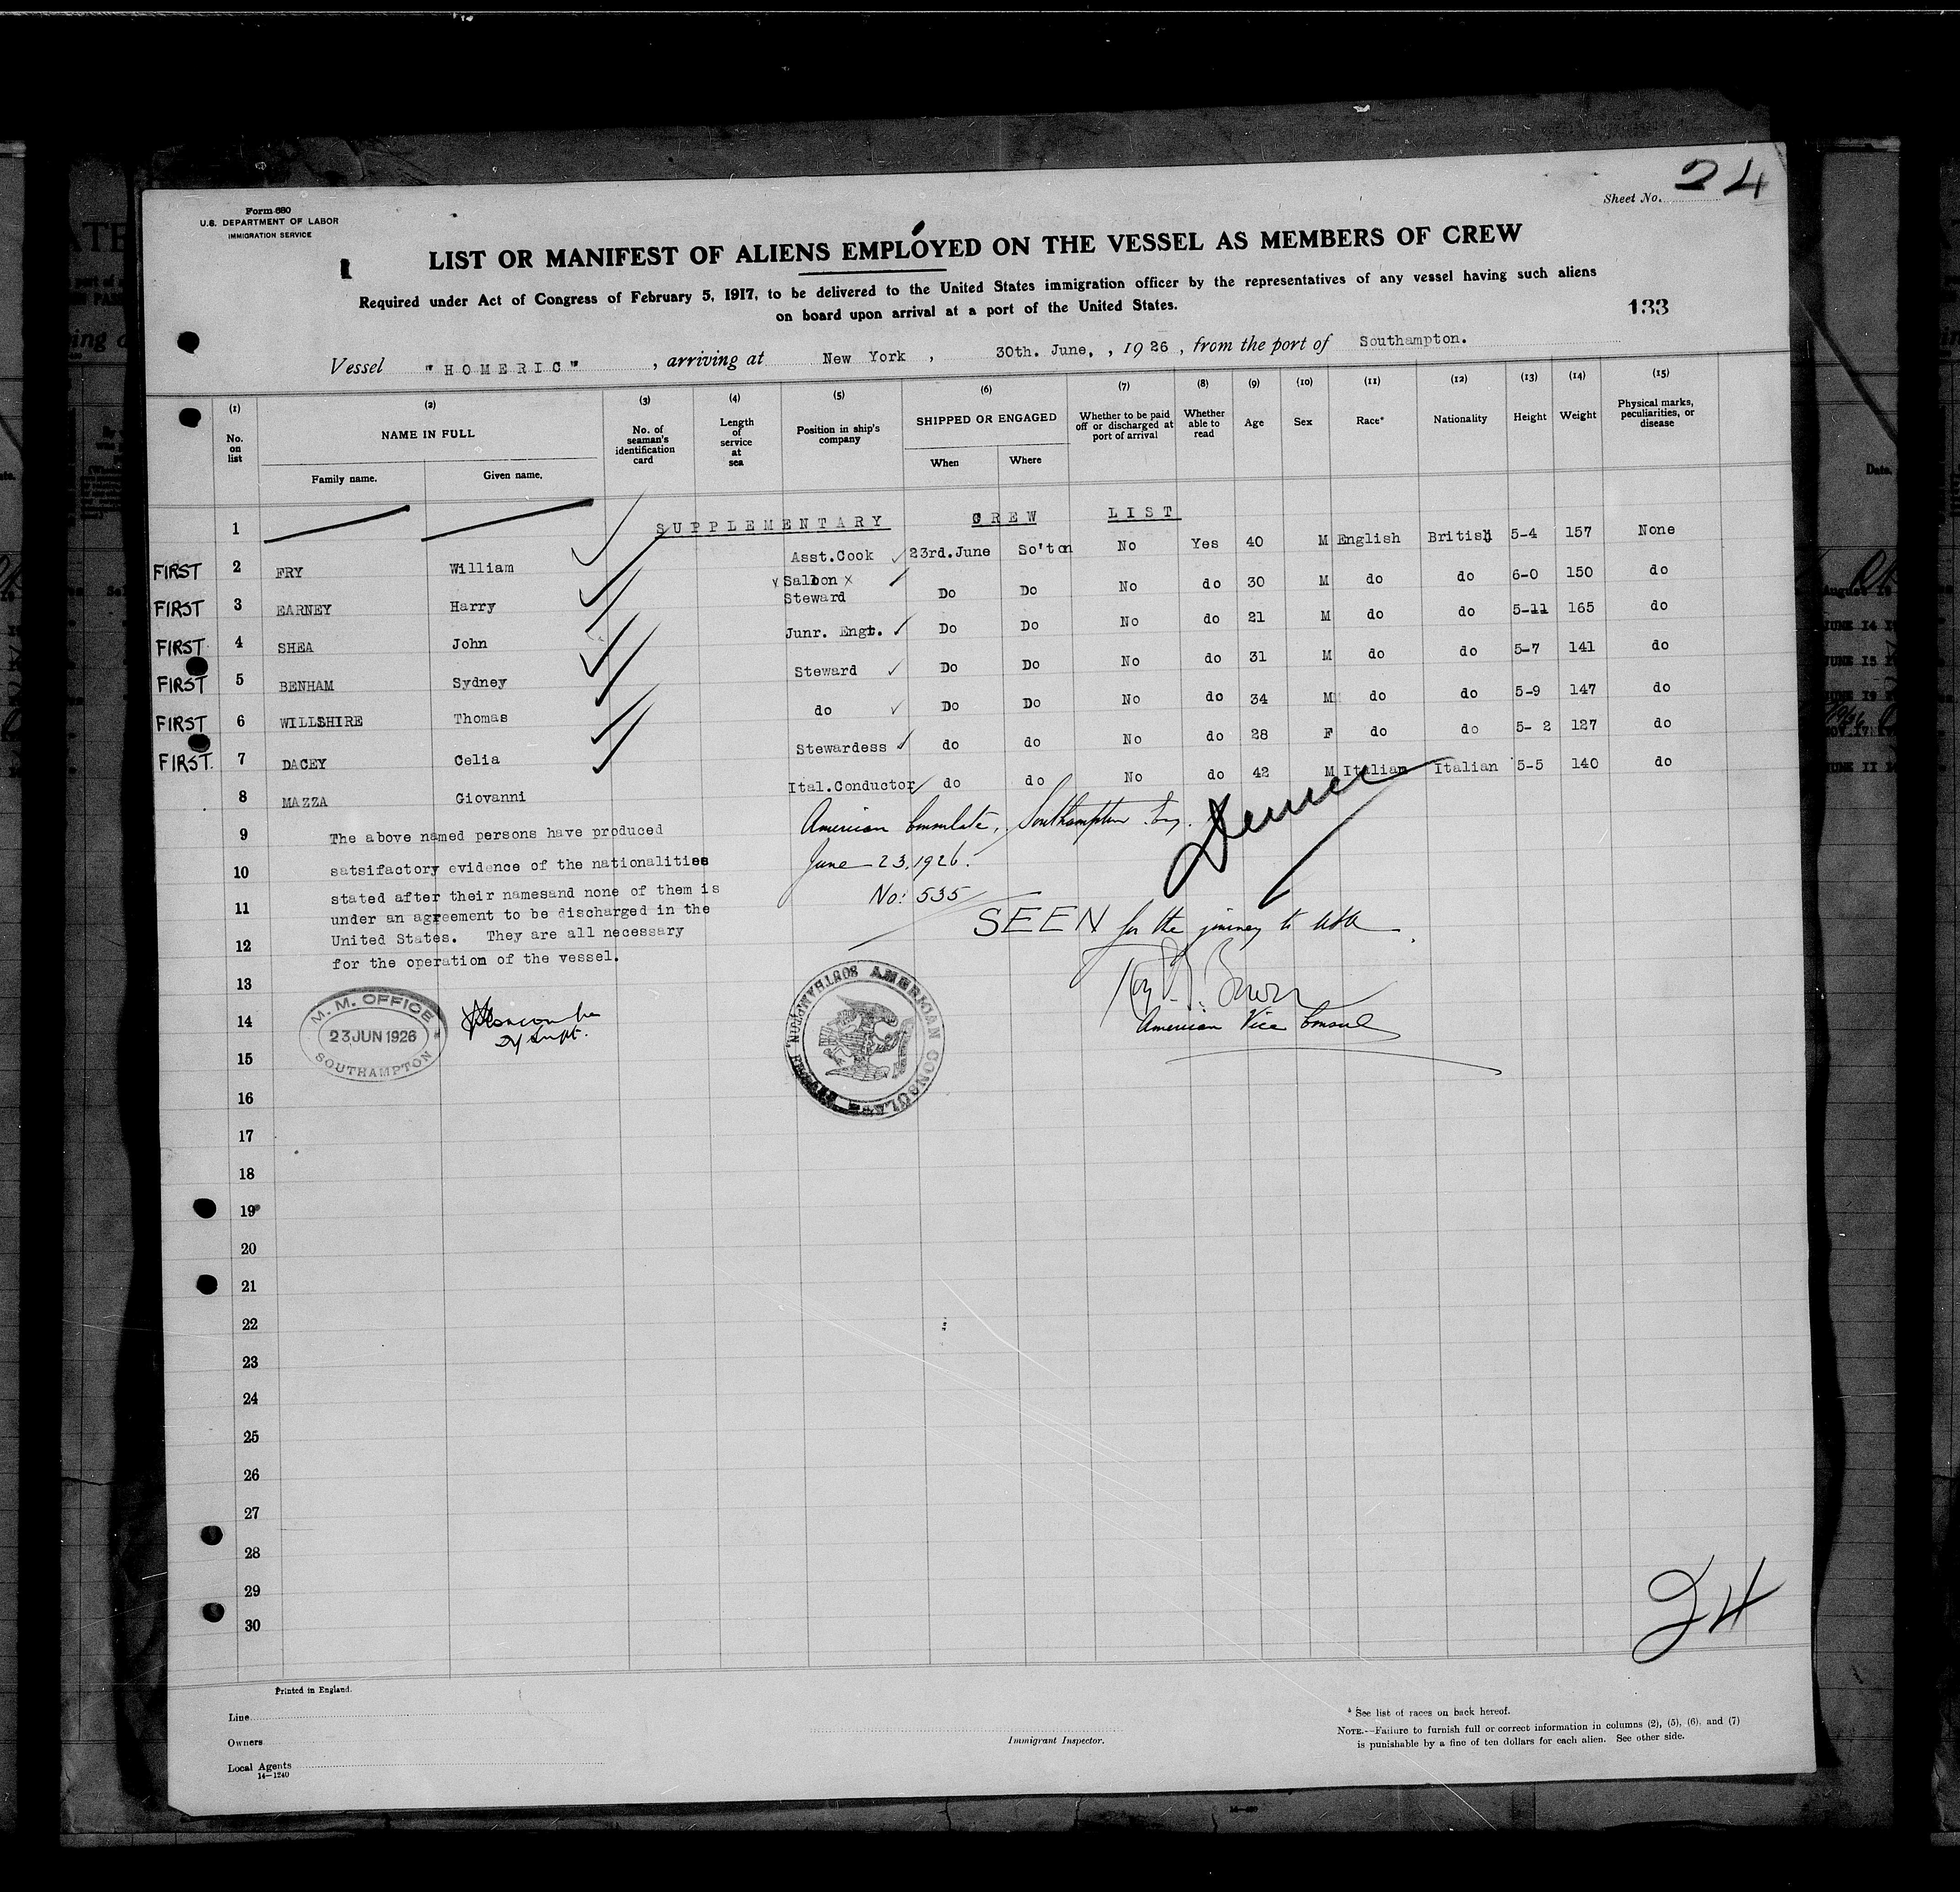 Form 680
U.S. DEPARTMENT OF LABOR
IMMIGRATION SERVICE
Sheet No. 24
LIST OR MANIFEST OF ALIENS EMPLOYED ON THE VESSEL AS MEMBERS OF CREW
Required under Act of Congress of February 5, 1917, to be delivered to the United States immigration officer by the representatives of any vessel having such aliens
on board upon arrival at a port of the United States.
133
Vessel "HOMERIC", arriving at New York, 30th. June, , 1926, from the port of Southampton.
(1) (2) (3) (4) (5) (6) (7) (8) (9) (10) (11) (12) (13) (14) (15)
No. on list
NAME IN FULL
Family name. Given name.
No. of seaman's identification card
Length of service at sea
Position in ship's company
SHIPPED OR ENGAGED
When Where
Whether to be paid off or discharged at port of arrival
Whether able to read
Age
Sex
Race*
Nationality
Height
Weight
Physical marks, peculiarities, or disease
1 SUPPLEMENTARY CREW LIST
FIRST 2 FRY William Asst.Cook 23rd.June So'ton No Yes 40 M English British 5-4 157 None
FIRST 3 EARNEY Harry Saloon Steward Do Do No do 30 M do do 6-0 150 do
FIRST 4 SHEA John Junr. Engt. Do Do No do 21 M do do 5-11 165 do
FIRST 5 BENHAM Sydney Steward Do Do No do 31 M do do 5-7 141 do
FIRST 6 WILLSHIRE Thomas do Do Do No do 34 M do do 5-9 147 do
FIRST. 7 DACEY Celia Stewardess do do No do 28 F do do 5- 2 127 do
8 MAZZA Giovanni Ital.Conductor do do No do 42 M Italian Italian 5-5 140 do
9
10
11
12
13
14
15
16
17
18
19
20
21
22
23
24
25
26
27
28
29
30
The above named persons have produced
satsifactory evidence of the nationalities
stated after their namesand none of them is
under an agreement to be discharged in the
United States. They are all necessary
for the operation of the vessel.
M. M. OFFICE
23 JUN 1926
SOUTHAMPTON
American Consulate, Southampton Eng.
June 23, 1926.
No: 535
SEEN for the journey to USA
American Vice Consul
AMERICAN CONSULATE
SOUTHAMPTON,
24
Printed in England.
Line
Owners
Local Agents
14—1240
Immigrant Inspector.
* See list of races on back hereof.
NOTE.—Failure to furnish full or correct information in columns (2), (5), (6), and (7)
is punishable by a fine of ten dollars for each alien. See other side.